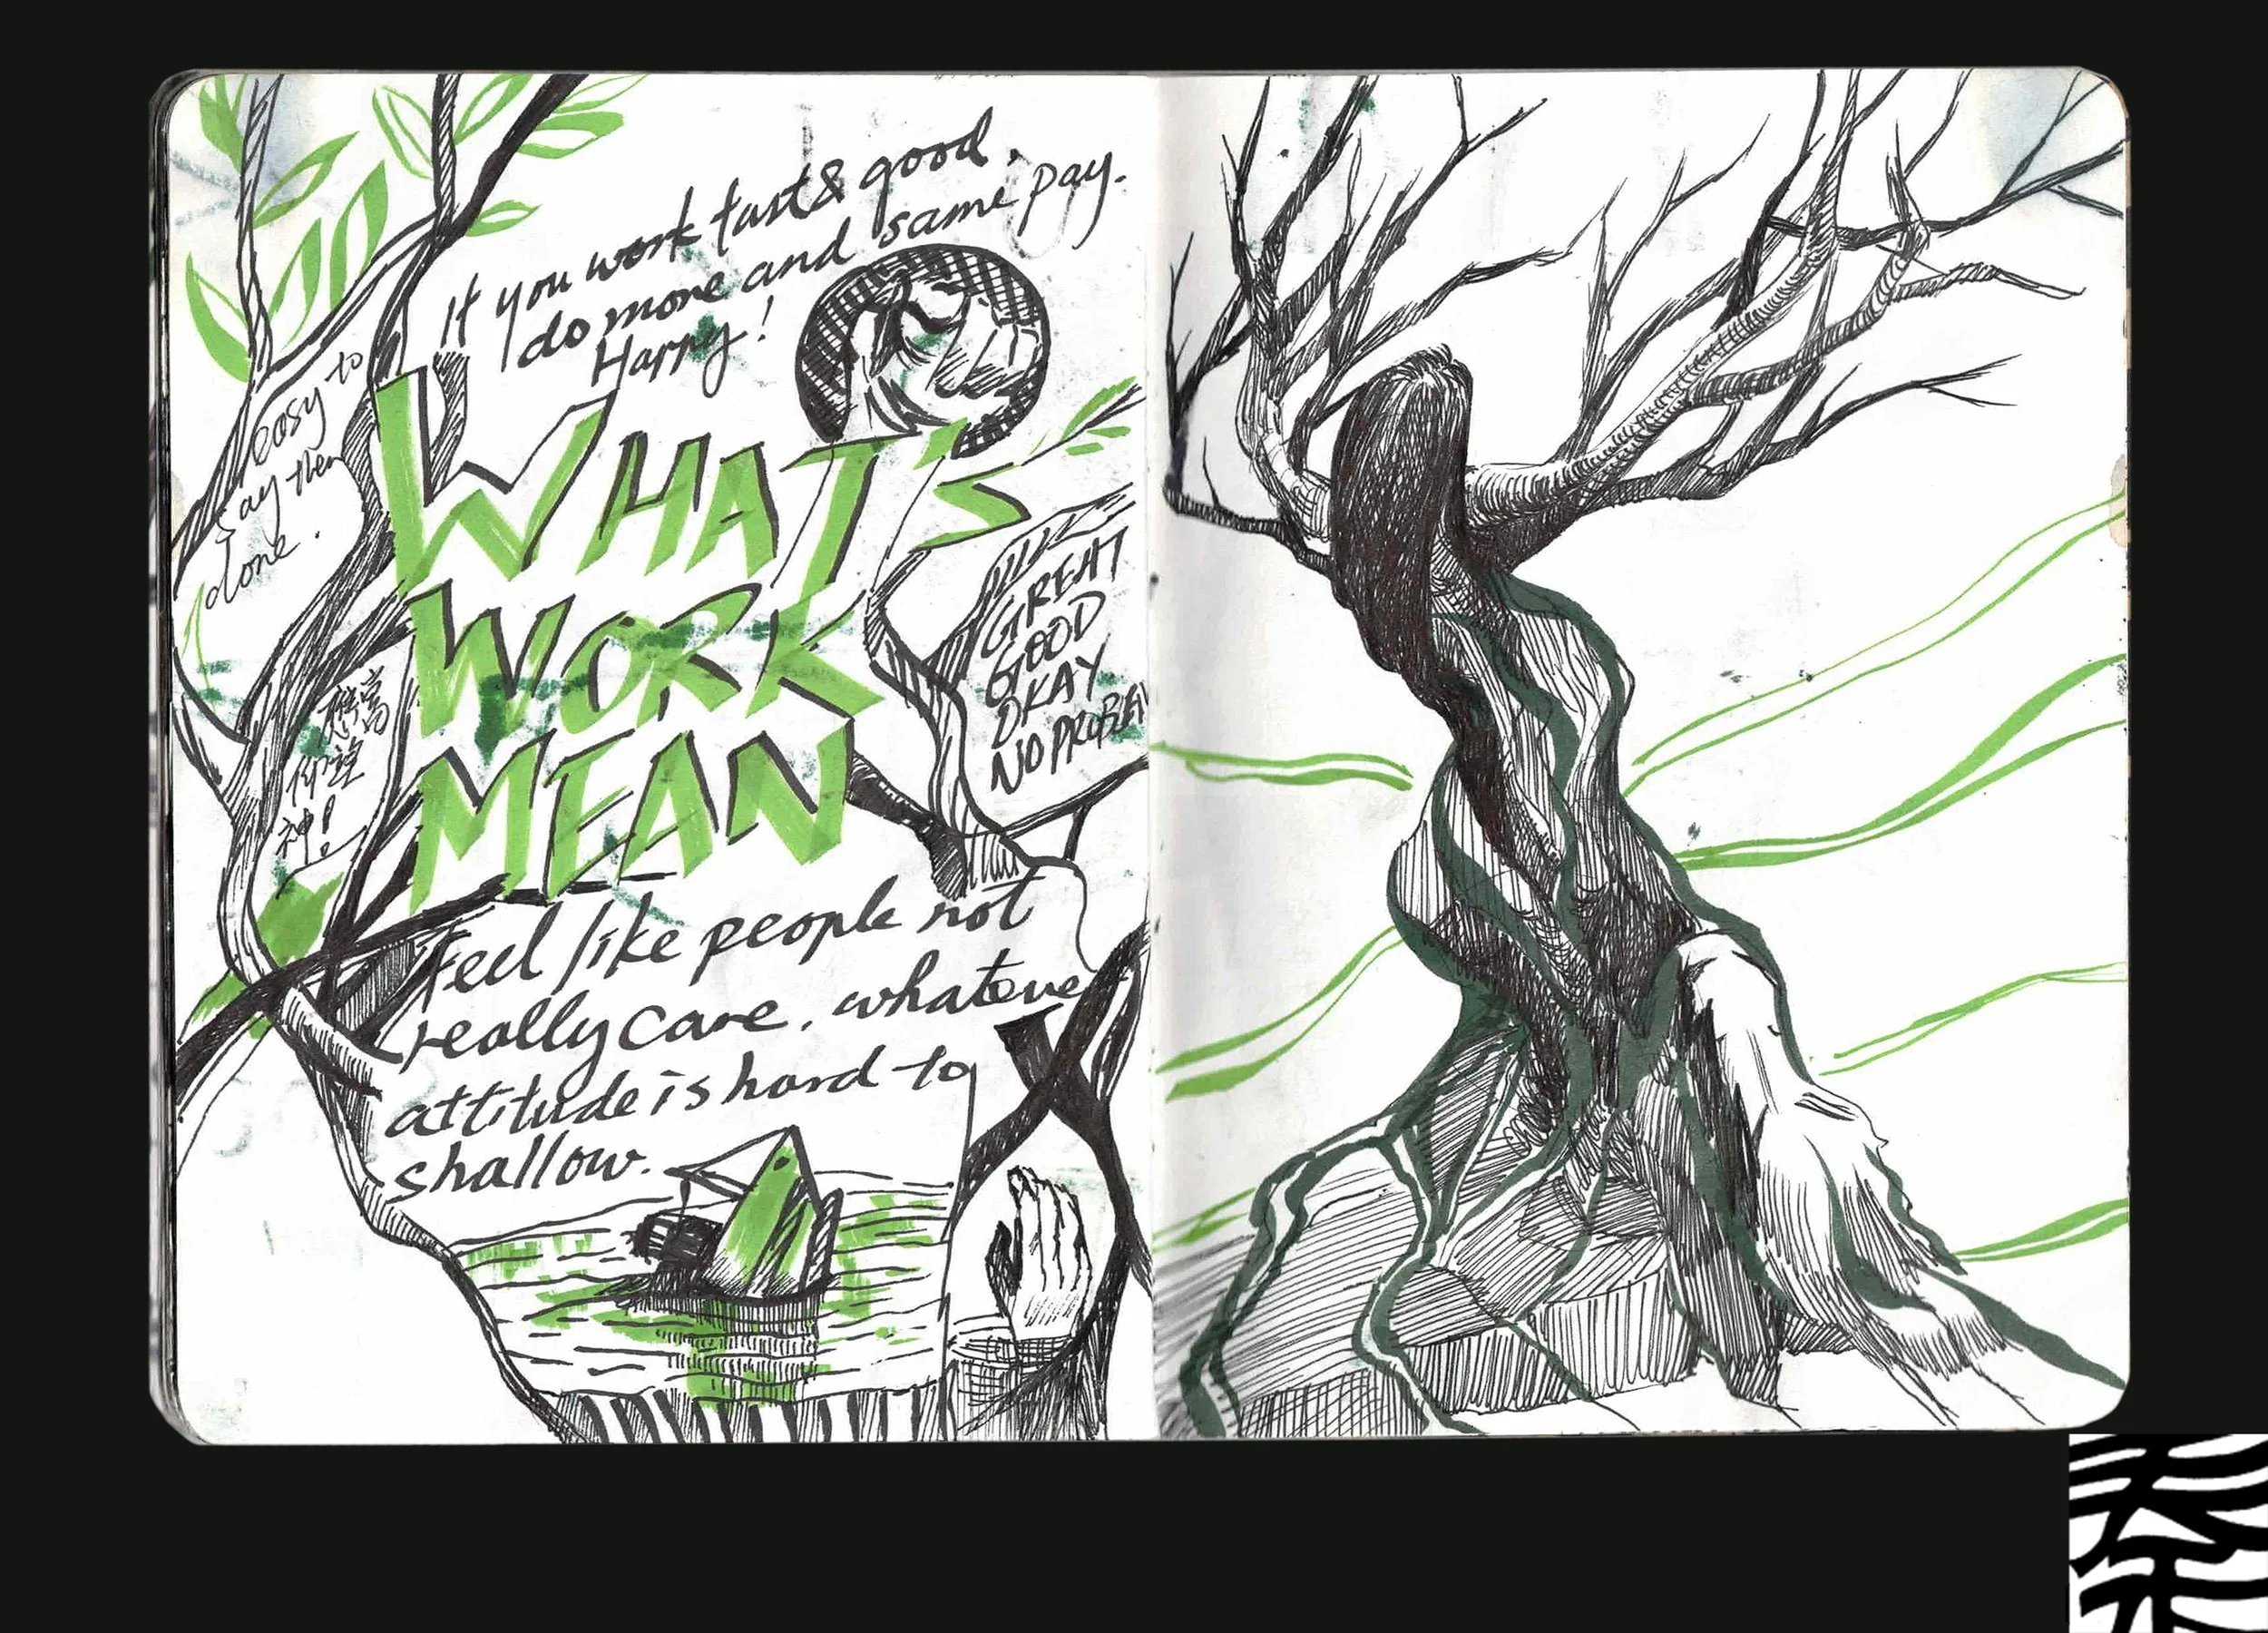 If you work fast & good.
do more and same pay.
Happy!
easy to
say then
done.
WHAT'S
WORK
MEAN
GREAT
GOOD
OKAY
NO PROBLEM
應當
仰望
神!
Feel like people not
really care. whateve
attitude is hard to
shallow.